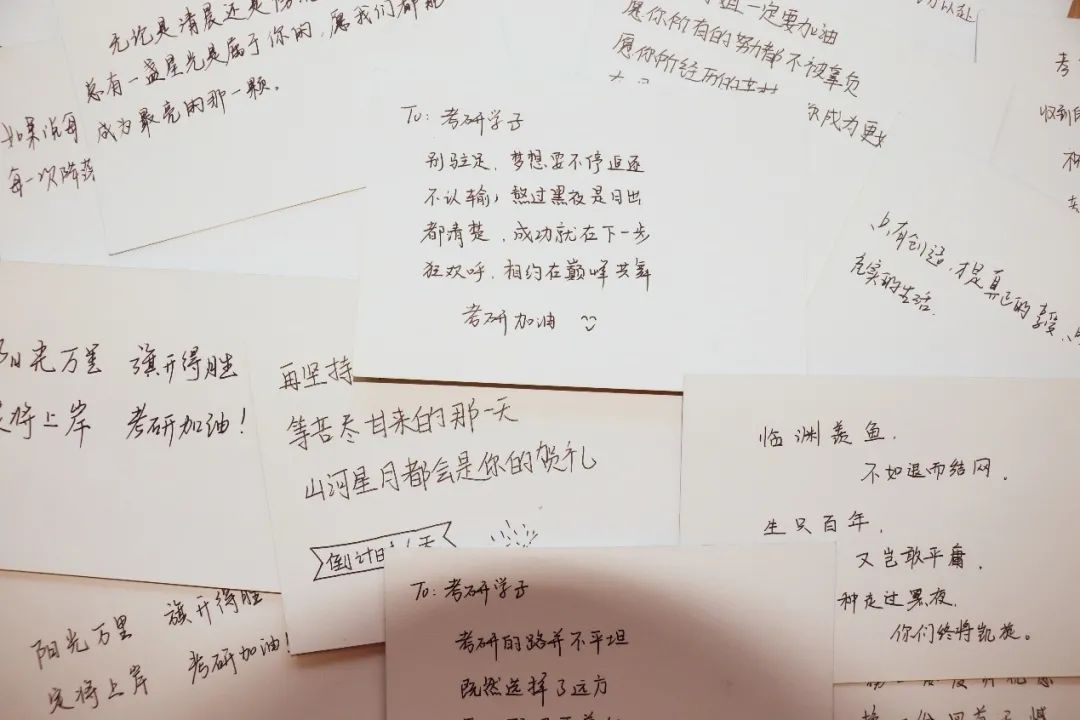 无论是清晨还是
总有一盏星光是属于你的,愿我们都能
成为最亮的那一颗。
如果说每
每一次
一定要加油
愿你所有的努力都不被辜负
愿你所经历的
成为更
收到
To: 考研学子
别驻足,梦想要不停追逐
不认输,熬过黑夜是日出
都清楚,成功就在下一步
狂欢呼,相约在巅峰共舞
考研加油
有创造,才是真正的享受,
充实的生活.
阳光万里 旗开得胜
将上岸 考研加油!
再坚持
等苦尽甘来的那一天
山河星月都会是你的贺礼
倒计时
临渊羡鱼,
不如退而结网.
生只百年,
又岂敢平庸,
种走过黑夜,
你们终将凯旋。
To: 考研学子
考研的路并不平坦
既然选择了远方
阳光万里 旗开得胜
定将上岸 考研加油!